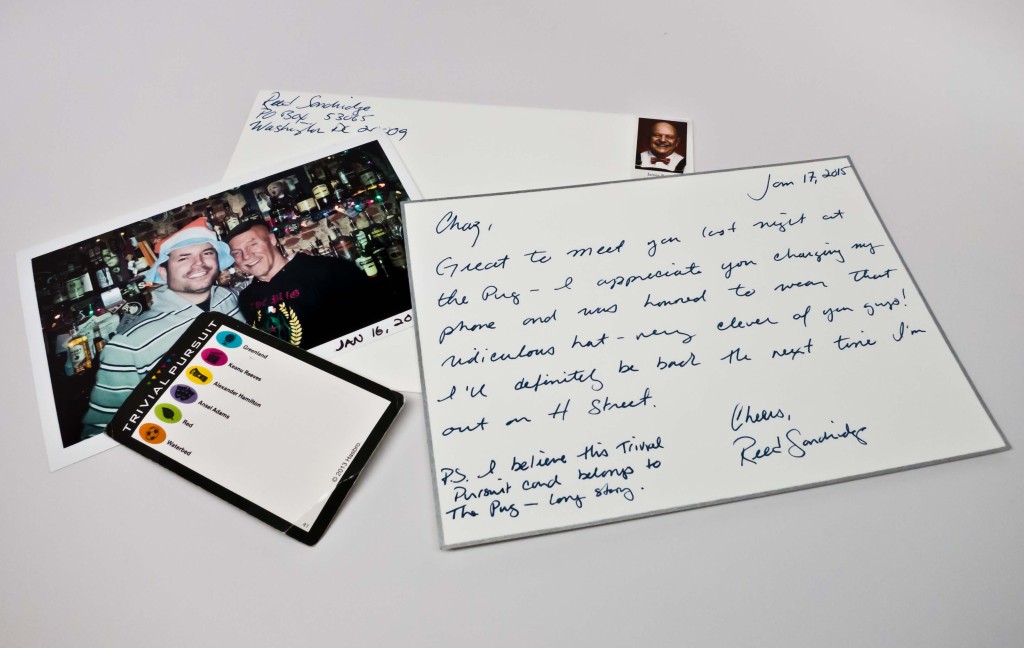 Reed Sandridge
PO Box 53065
Washington DC 20009
Jan 17, 2015
Chaz,
Great to meet you last night at
the Pug - I appreciate you charging my
phone and was honored to wear that
ridiculous hat - very clever of you guys!
I'll definitely be back the next time I'm
out on H Street.
Cheers,
Reed Sandridge
P.S. I believe this Trivial
Pursuit card belongs to
The Pug - Long story.
JAN 16, 20
TRIVIAL PURSUIT
Greenland
Keanu Reeves
Alexander Hamilton
Ansel Adams
Red
Waterbed
© 2013 Hasbro